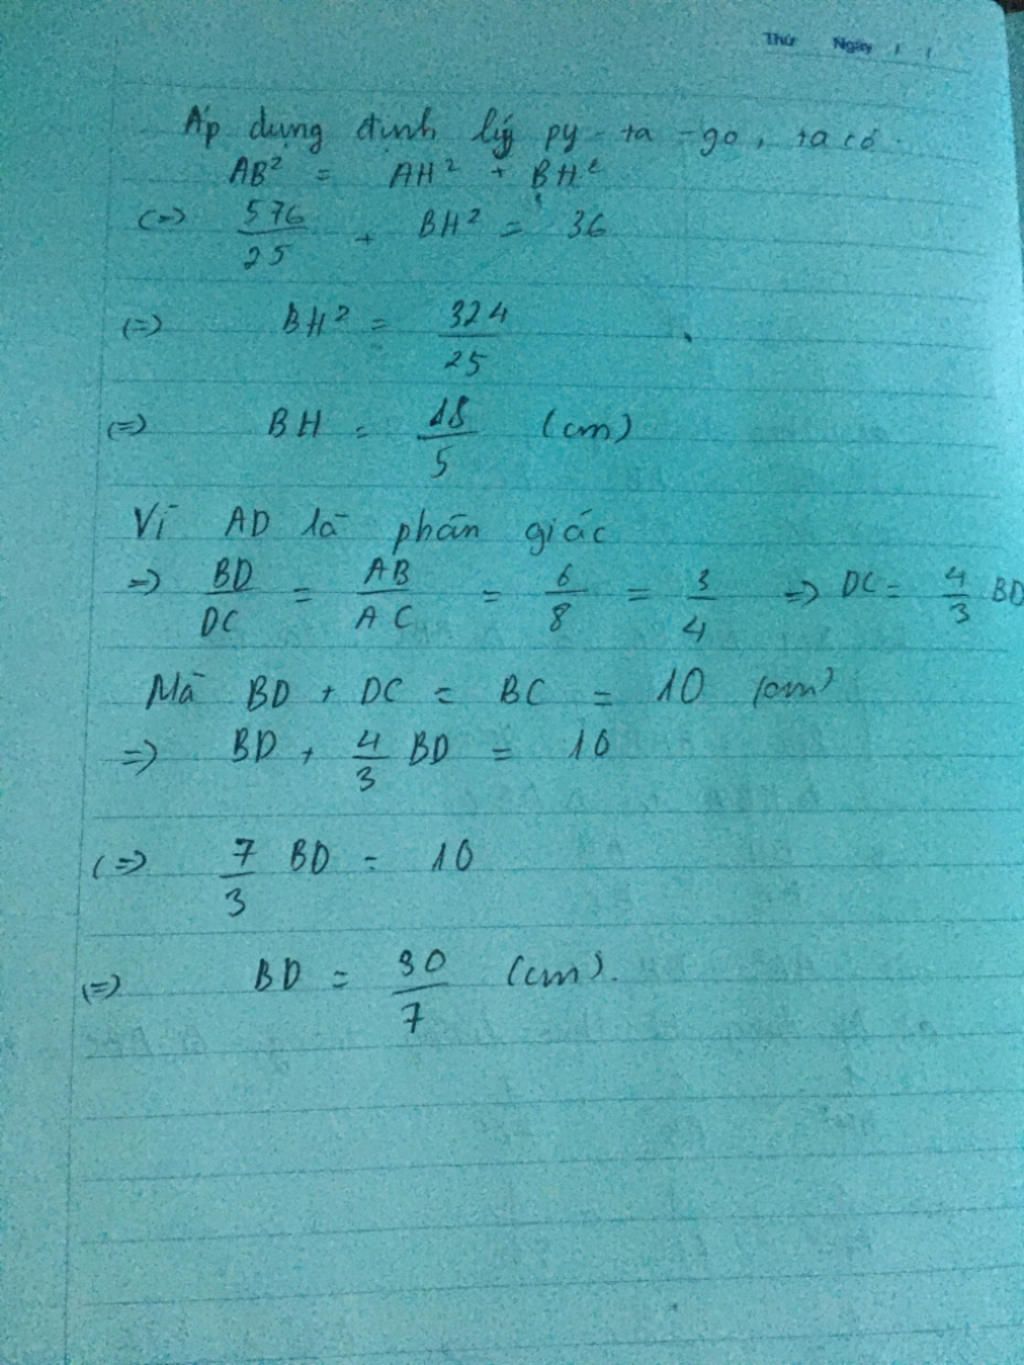 Thứ Ngày / /
Áp dụng định lý py-ta-go, ta có
AB² = AH² + BH²
(=) 576/25 + BH² = 36
(=) BH² = 324/25
(=) BH = 18/5 (cm)
Vì AD là phân giác
=) BD/DC = AB/AC = 6/8 = 3/4 =) DC = 4/3 BD
Mà BD + DC = BC = 10 (cm)
=) BD + 4/3 BD = 10
(=) 7/3 BD = 10
(=) BD = 30/7 (cm).